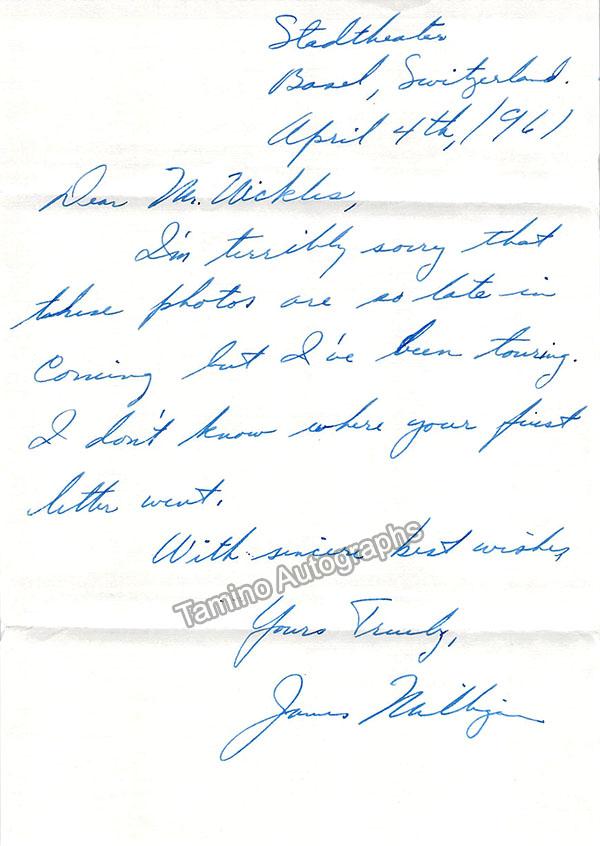 Stadttheater
Basel, Switzerland.
April 4th, 1961
Dear Mr. Nickles,
I'm terribly sorry that
these photos are so late in
coming but I've been touring.
I don't know where your first
letter went.
With sincere best wishes,
Tamino Autographs
Yours Truly,
James Milligan